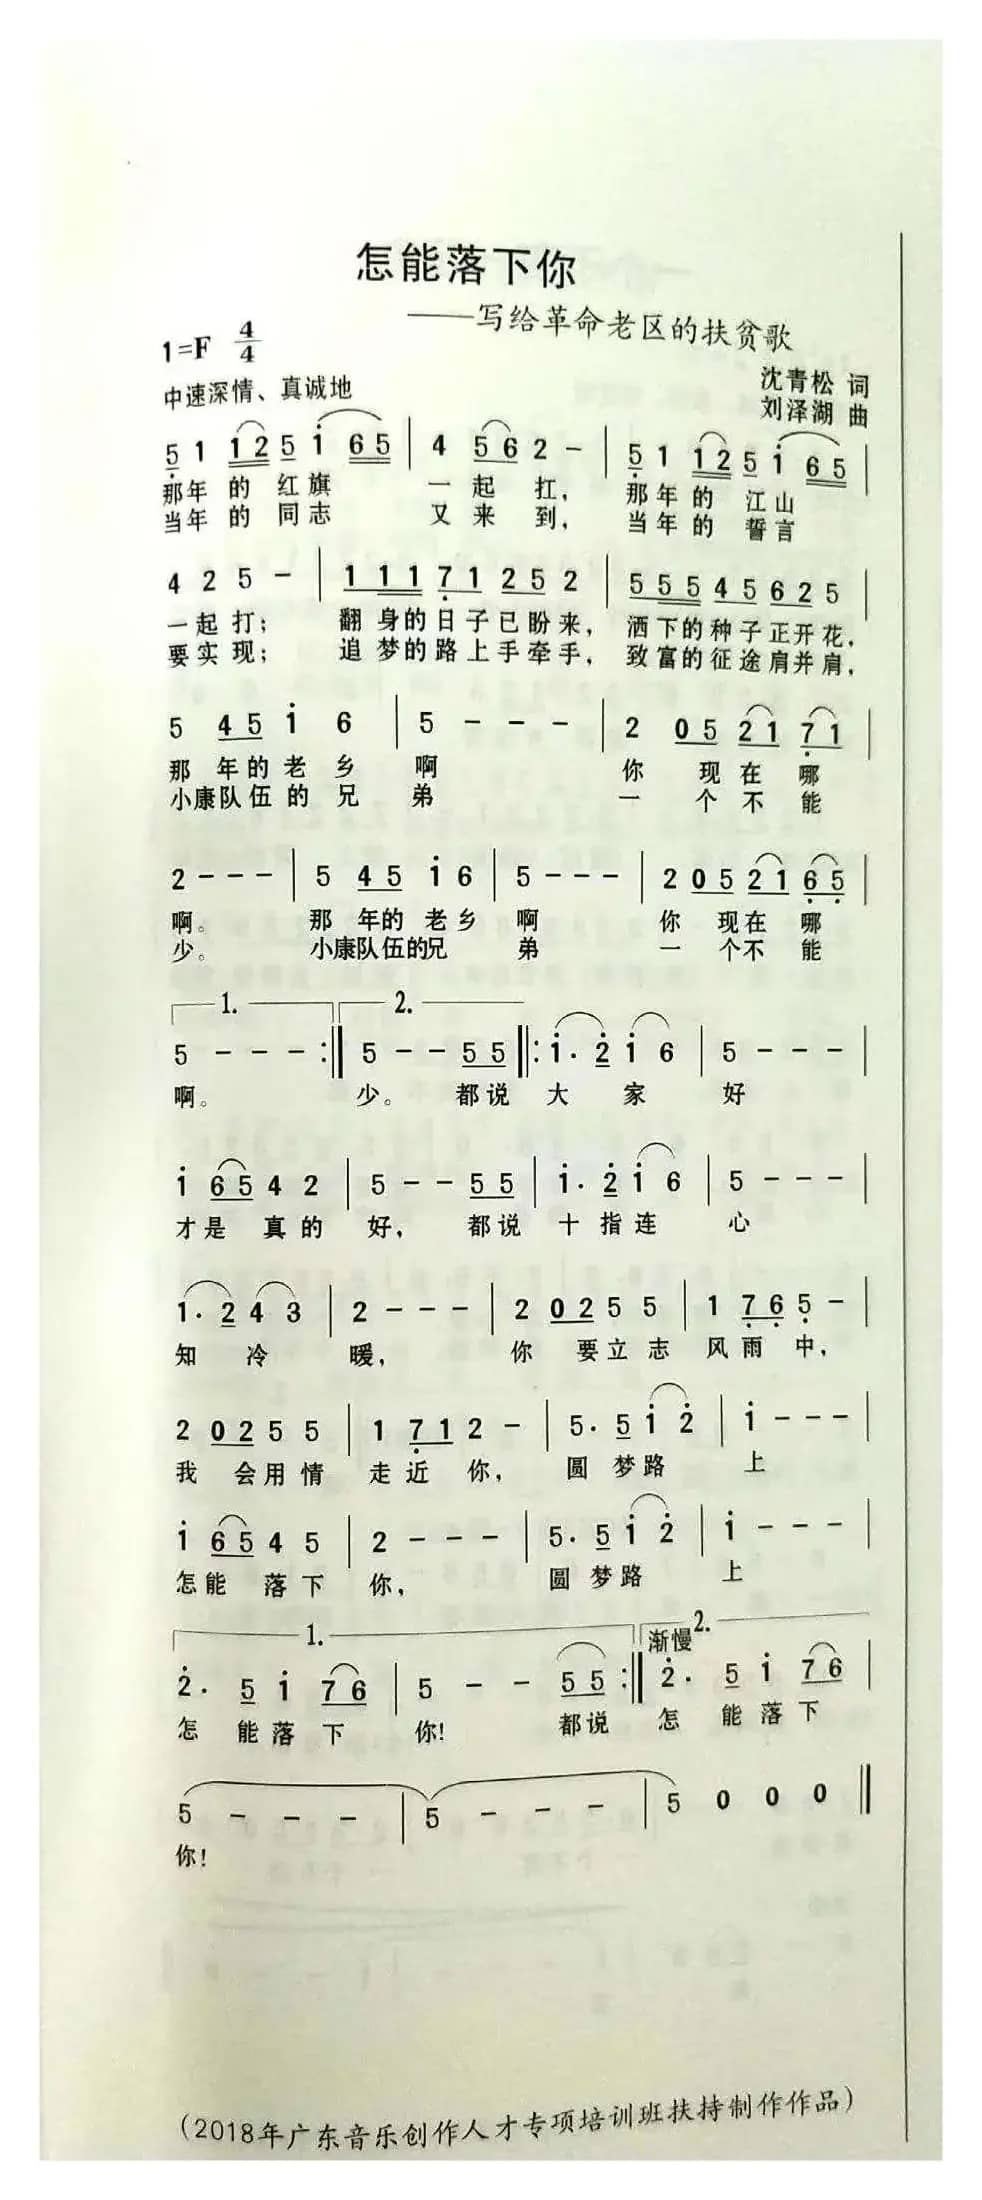 怎能落下你
——写给革命老区的扶贫歌
1=F 4/4
中速深情、真诚地
沈青松 词
刘泽湖 曲
5 1 1 2 5 i 6 5 | 4 5 6 2 - | 5 1 1 2 5 i 6 5 |
那年 的 红旗 一 起 扛, 那年 的 江山
当年 的 同志 又 来 到, 当年 的 誓言
4 2 5 - | 1 1 1 7 1 2 5 2 | 5 5 5 4 5 6 2 5 |
一起打; 翻身的日子已盼来, 洒下的种子正开花,
要实现; 追梦的路上手牵手, 致富的征途肩并肩,
5 4 5 i 6 | 5 - - - | 2 0 5 2 1 7 1 |
那 年的老乡 啊 你 现在 哪
小康队伍的兄 弟 一 个不 能
2 - - - | 5 4 5 i 6 | 5 - - - | 2 0 5 2 1 6 5 |
啊。 那 年的 老乡 啊 你 现在 哪
少。 小康队伍的兄 弟 一 个不 能
1. 2.
5 - - - :|| 5 - - 5 5 ||: i· 2 i 6 | 5 - - - |
啊。 少。 都说 大 家 好
i 6 5 4 2 | 5 - - 5 5 | i· 2 i 6 | 5 - - - |
才是 真的 好, 都说 十指连 心
1· 2 4 3 | 2 - - - | 2 0 2 5 5 | 1 7 6 5 - |
知 冷 暖, 你 要立志 风雨中,
2 0 2 5 5 | 1 7 1 2 - | 5· 5 i 2 | i - - - |
我 会用情 走近 你, 圆 梦路 上
i 6 5 4 5 | 2 - - - | 5· 5 i 2 | i - - - |
怎能 落下 你, 圆 梦路 上
1. 渐慢 2.
2· 5 i 7 6 | 5 - - 5 5 :|| 2· 5 i 7 6 |
怎 能落 下 你! 都说 怎 能落 下
5 - - - | 5 - - - | 5 0 0 0 ||
你!
(2018年广东音乐创作人才专项培训班扶持制作作品)